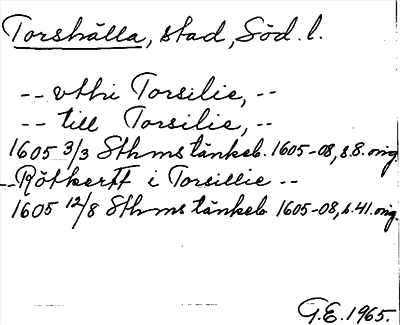 Torshälla, stad, Söd. l.
-- vthi Torsilie, --
-- till Torsilie, --
1605 3/3 Sthms tänkeb. 1605-08, s.8. orig.
-- Rötkertt i Torsillie --
1605 12/8 Sthms tänkeb 1605-08, s.41. orig.
G.E. 1965.